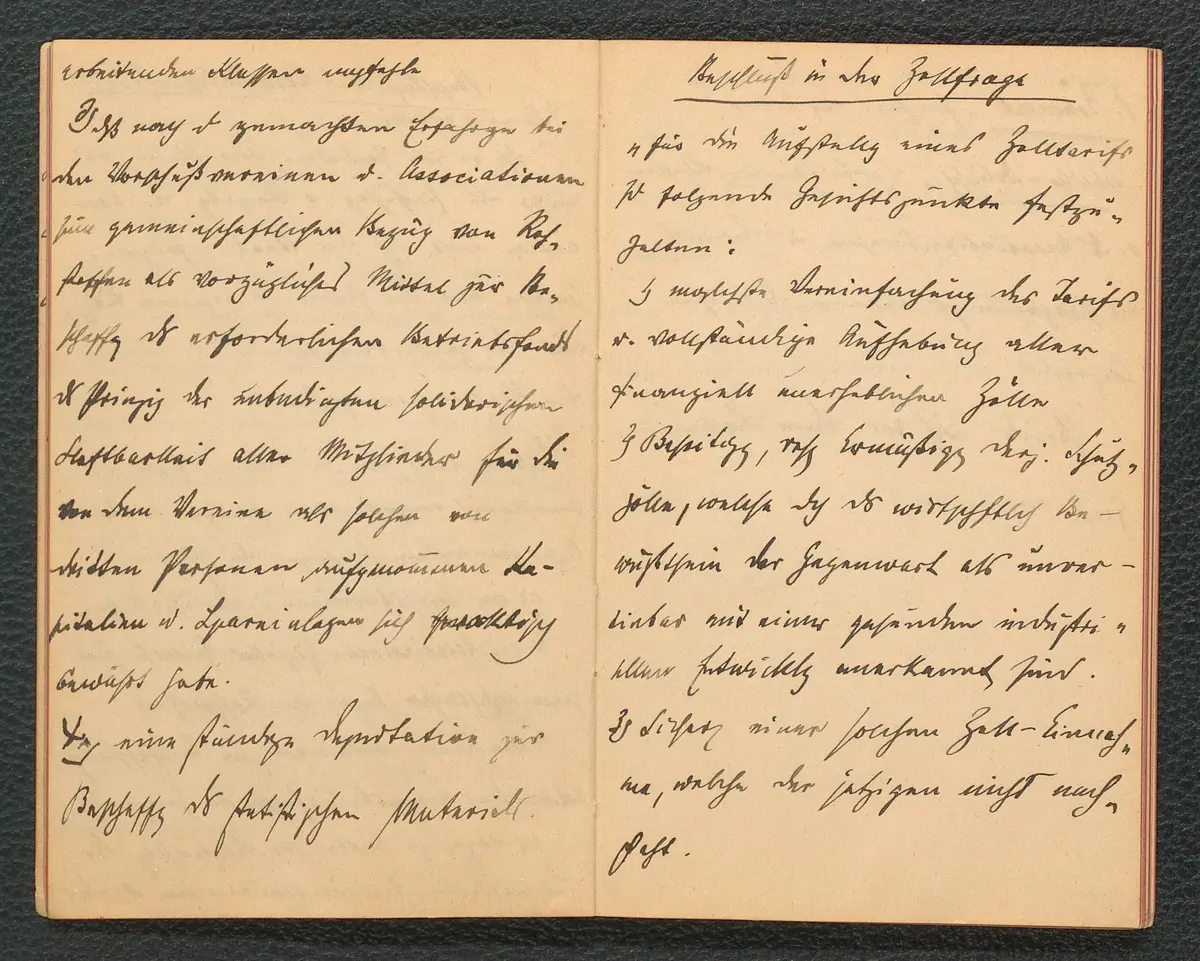 arbeitenden Klassen empfehle
3) dß nach d gemachten Erfahrge bei
den Vorschußvereinen u. Associationen
zum gemeinschaftlichen Bezug von Roh-
stoffen als vorzügliches Mittel zur Be-
schaffg ds erforderlichen Betriebsfonds
ds Prinzip der unbedingten solidarischen
Haftbarkeit aller Mitglieder für die
von dem Vereine als solchen von
dritten Personen aufgenommenen Ka-
pitalien u. Spareinlagen sich praktisch
bewährt habe.
4) eine ständige Deputation zur
Beschaffg ds statistischen Materials.
Beschluß in der Zollfrage
"für die Aufstellg eines Zolltarifs
sd folgende Gesichtspunkte festzu-
halten:
1) möglichste Vereinfachung des Tarifs
u. vollständige Aufhebung aller
finanziell unerheblichen Zölle
2) Beseitigg, resp Ermäßigg derj. Schutz-
zölle, welche dch ds wirtschftlch Be-
wußtsein der Gegenwart als unver-
einbar mit einer gesunden industri-
ellen Entwicklg anerkannt sind.
3) Sicherg einer solchen Zoll-Einnah-
me, welche der jetzigen nicht nach-
steht.